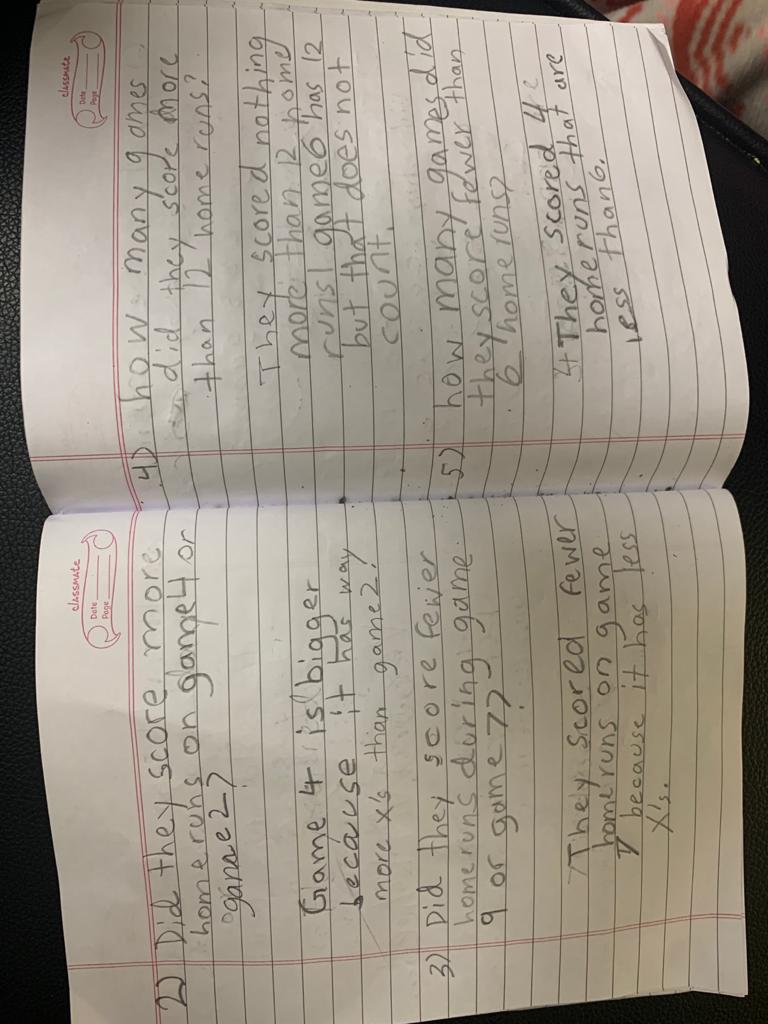 classmate
Date
Page
2) Did they score more
homeruns on game 4 or
game 2?
Game 4 is bigger
because it has way
more x's than game 2.
3) Did they score fewer
homeruns during game
9 or game 7?
They scored fewer
homeruns on game
7 because it has less
X's.
classmate
Date
Page
4) how many games
did they score more
than 12 home runs?
They scored nothing
more than 12 home
runs! game6 has 12
but that does not
count.
5) how many games did
they score fewer than
6 home runs?
They scored 4
home runs that are
less than 6.